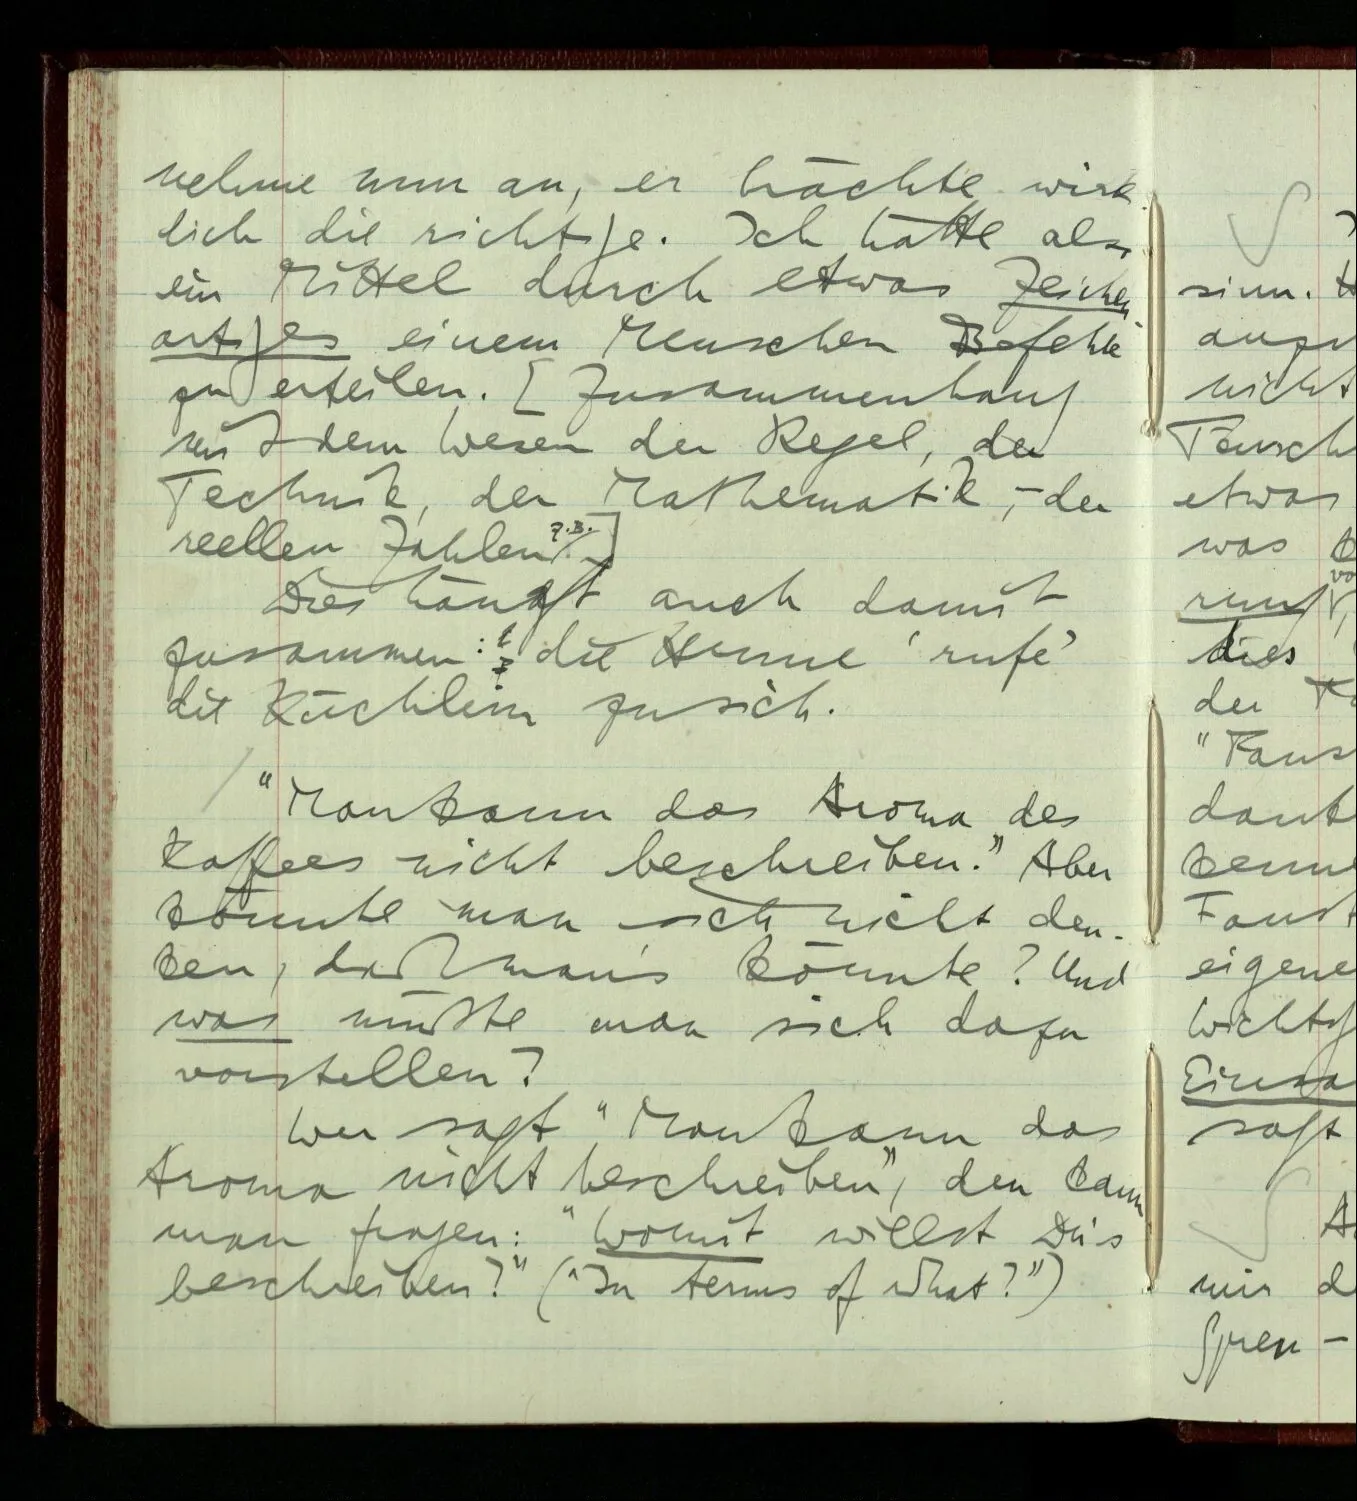 nehme nun an, er brächte wirk
lich die richtige. Ich hätte also
ein Mittel durch etwas Zeichen-
artiges einem Menschen Befehle
zu erteilen. [Zusammenhang
mit dem Wesen der Regel, der
Technik, der Mathematik, – der
reellen Zahlen z.B.]
Dies hängt auch damit
zusammen: die Henne ‘rufe’
die Küchlein zu sich.
"Man kann das Aroma des
Kaffees nicht beschreiben." Aber
könnte man sich nicht den-
ken, daß man's könnte? Und
was müßte man sich dazu
vorstellen?
Wer sagt "Man kann das
Aroma nicht beschreiben", den kann
man fragen: "Womit willst Du's
beschreiben?" ("In terms of what?")
sinn.
nicht
etwas
was
rung
dies
der
eigene
sagt
mir